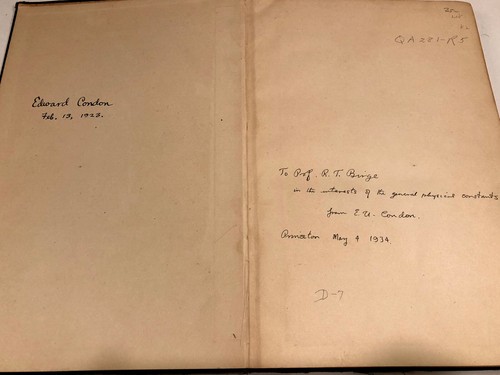 Edward Condon
Feb. 13, 1923.
QA221-R5
To Prof. R. T. Birge
in the interests of the general physical constants
from E. U. Condon.
Princeton May 4 1934.
D-7